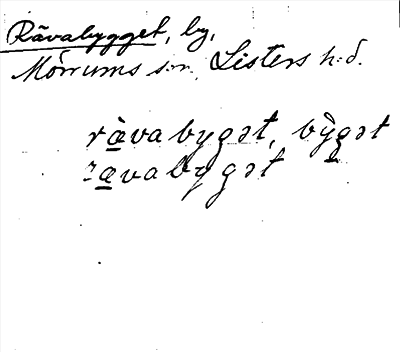 Rävabygget, by,
Mörrums sn. Listers h:d.
ràvabygət, bỳgət
ravabygət